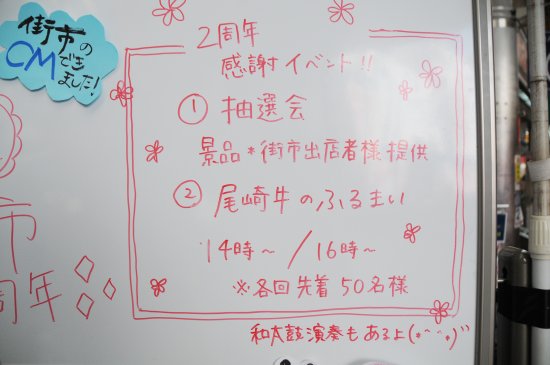 街市の
CMでき
ました!
2周年
感謝イベント!!
① 抽選会
景品*街市出店者様提供
② 尾崎牛のふるまい
14時～/16時～
※各回先着50名様
和太鼓演奏もあるよ(*^^*)"
市
周年